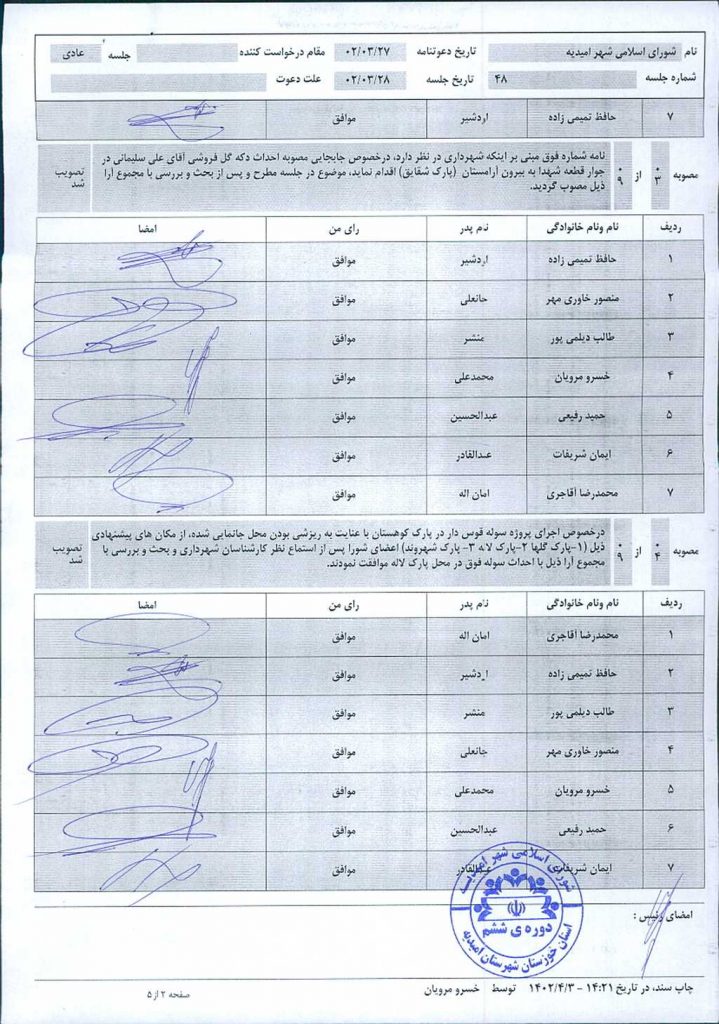 نام شورای اسلامی شهر امیدیه تاریخ دعوتنامه ۰۲/۰۳/۲۷ مقام درخواست کننده جلسه عادی
شماره جلسه ۴۸ تاریخ جلسه ۰۲/۰۳/۲۸ علت دعوت
۷ حافظ تمیمی زاده اردشیر موافق
مصوبه ۰۳ از ۰۹ نامه شماره فوق مبنی بر اینکه شهرداری در نظر دارد، درخصوص جابجایی مصوبه احداث دکه گل فروشی آقای علی سلیمانی در تصویب
جوار قطعه شهدا به بیرون آرامستان (پارک شقایق) اقدام نماید، موضوع در جلسه مطرح و پس از بحث و بررسی با مجموع آرا شد
ذیل مصوب گردید.
ردیف نام ونام خانوادگی نام پدر رای من امضا
۱ حافظ تمیمی زاده اردشیر موافق
۲ منصور خاوری مهر جانعلی موافق
۳ طالب دیلمی پور منشر موافق
۴ خسرو مرویان محمدعلی موافق
۵ حمید رفیعی عبدالحسین موافق
۶ ایمان شریفات عبدالقادر موافق
۷ محمدرضا آقاجری امان اله موافق
مصوبه ۰۴ از ۰۹ درخصوص اجرای پروژه سوله قوس دار در پارک کوهستان با عنایت به ریزشی بودن محل جانمایی شده، از مکان های پیشنهادی تصویب
ذیل (۱-پارک گلها ۲-پارک لاله ۳- پارک شهروند) اعضای شورا پس از استماع نظر کارشناسان شهرداری و بحث و بررسی با شد
مجموع آرا ذیل با احداث سوله فوق در محل پارک لاله موافقت نمودند.
ردیف نام ونام خانوادگی نام پدر رای من امضا
۱ محمدرضا آقاجری امان اله موافق
۲ حافظ تمیمی زاده اردشیر موافق
۳ طالب دیلمی پور منشر موافق
۴ منصور خاوری مهر جانعلی موافق
۵ خسرو مرویان محمدعلی موافق
۶ حمید رفیعی عبدالحسین موافق
۷ ایمان شریفات عبدالقادر موافق
شورای اسلامی شهر امیدیه
دوره ی ششم
استان خوزستان شهرستان امیدیه
امضای رئیس :
چاپ سند، در تاریخ ۱۴:۲۱ - ۱۴۰۲/۴/۳ توسط خسرو مرویان صفحه ۲ از ۵